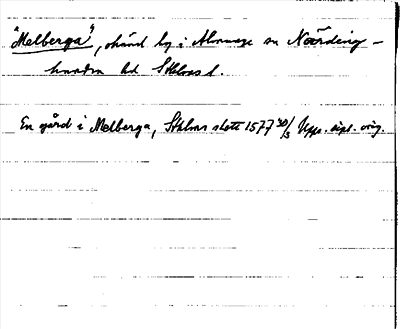 "Melberga", okänd by i Almunge sn Närding-
hundra hd Sthlms l.
En gård i Melberga, Sthlms slott 1577 30/3 Upps. dipl. orig.